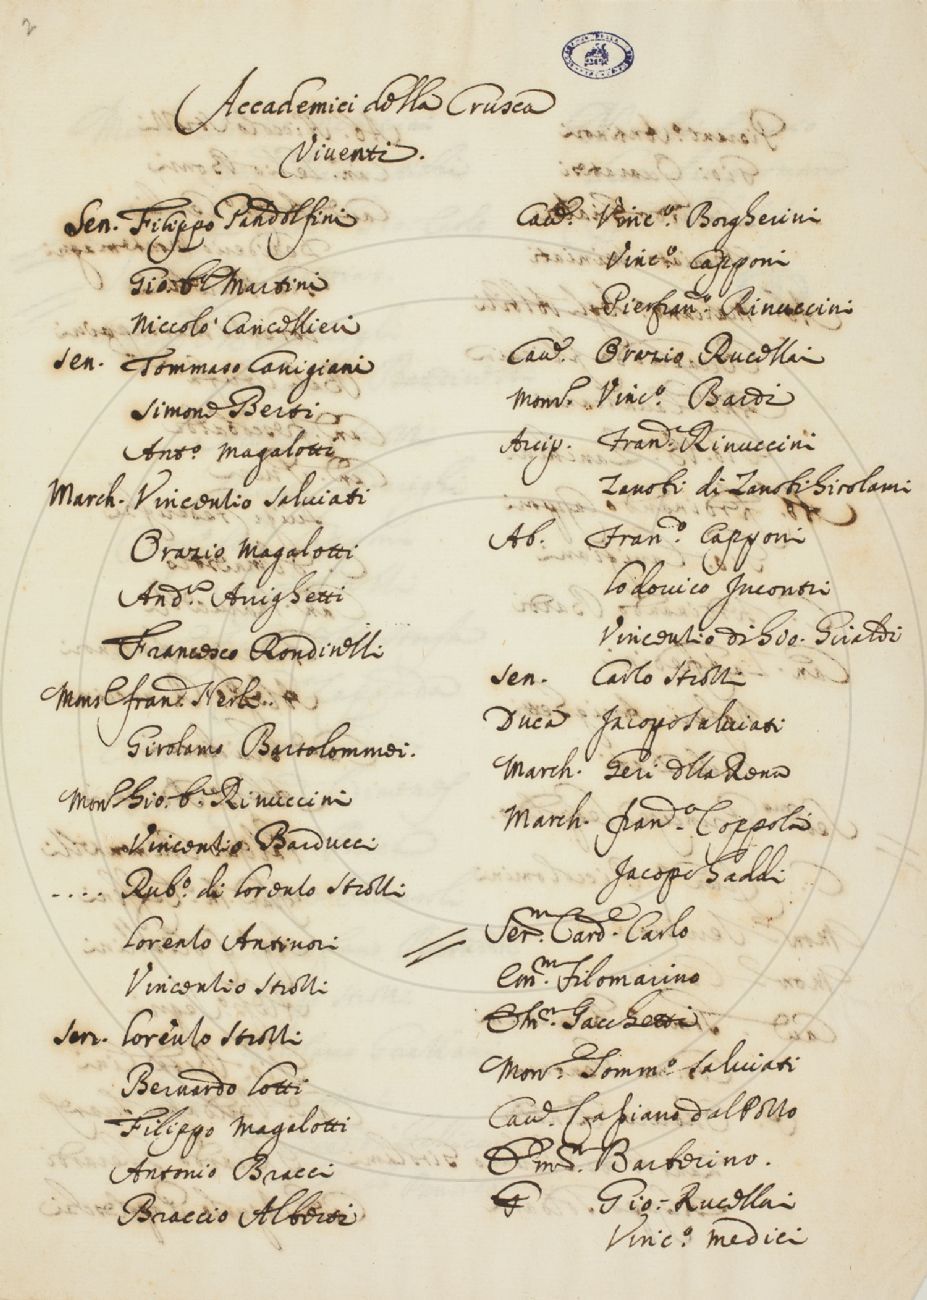 2
Accademici della Crusca
Viventi.
Sen. Filippo Pandolfini
Gio: bª Martini
Niccolò Cancellieri
Sen. Tommaso Canigiani
Simone Berti
Antº. Magalotti
March. Vincentio Salviati
Orazio Magalotti
Andª. Arrighetti
Francesco Rondinelli
Mons. franc. Nerli
Girolamo Bartolommei.
Mons. Gio. bª. Rinuccini
Vincentio Barducci
.... Rubº. di Lorenzo Strozzi
Lorenzo Antinori
Vincentio Strozzi
Sen. Lorenzo Strozzi
Bernardo Cotti
Filippo Magalotti
Antonio Bracci
Braccio Alberti
Cavʳ. Vincº. Borgherini
Vincº. Capponi
Pierfranº. Rinuccini
Cavʳ. Orazio Rucellai
Monsʳ. Vincº. Bardi
Arcip. Franº. Rinuccini
Zanobi di Zanobi Girolami
Ab. Franº. Capponi
Lodovico Incontri
Vincentio di Gio. Giraldi
Sen. Carlo Strozzi
Duca Jacopo Salviati
March. Geri dlla Rena
March. franº. Coppoli
Jacopo Gaddi
Serᵐ. Cardᵉ. Carlo
Emᵐ. Filomarino
Sacchetti
Monsʳ. Tommº. Salviati
Cavʳ. Cassiano dal Pozzo
Emᵐ. Barberino.
Gio: Rucellai
Vincº. Medici